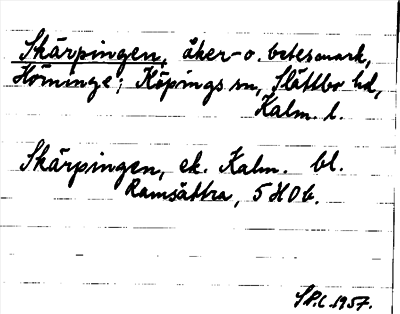 Skärpingen, åker- o. betesmark,
Höminge; Köpings sn, Slättbo hd,
Kalm. l.
Skärpingen, ek. Kalm. bl.
Ramsättra, 5 H 0 b.
1957.